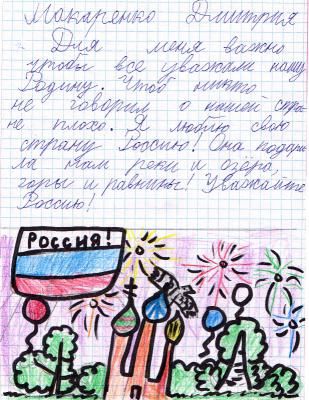 Макаренко Дмитрия
Для меня важно
чтобы все уважали нашу
Родину. Чтоб никто
не говорил о нашей стра
не плохо. Я люблю свою
страну Россию! Она подари
ла нам реки и озёра,
горы и равнины! Уважайте
Россию!
РОССИЯ!